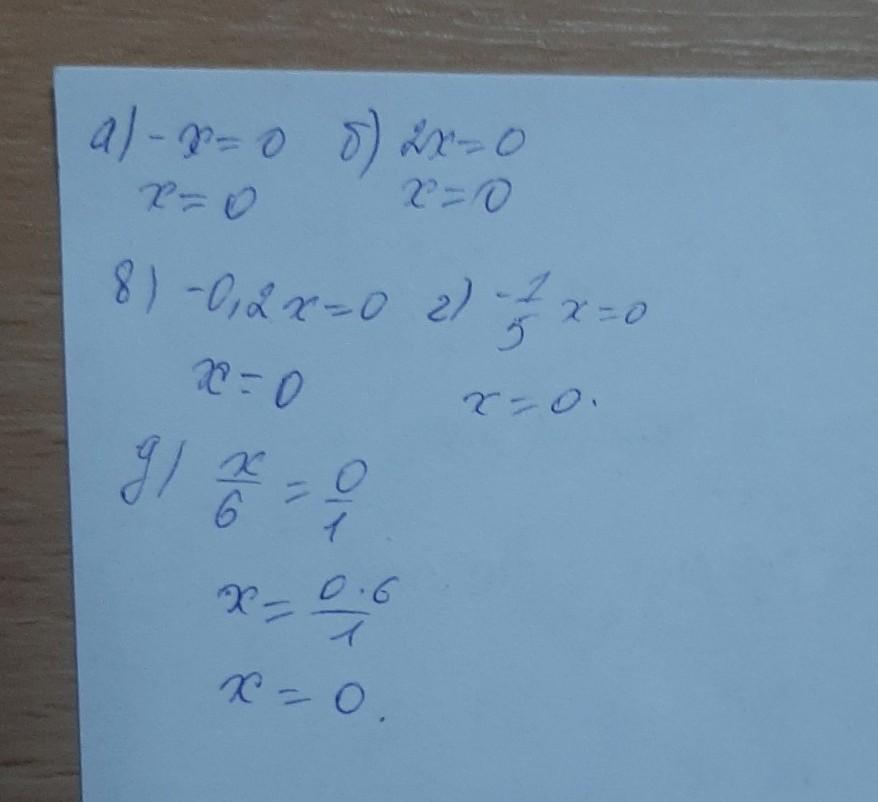 а) -x=0 б) 2x=0
x=0 x=0
в) -0,2x=0 г) -1/5 x=0
x=0 x=0.
д) x/6 = 0/1
x = 0·6/1
x = 0.